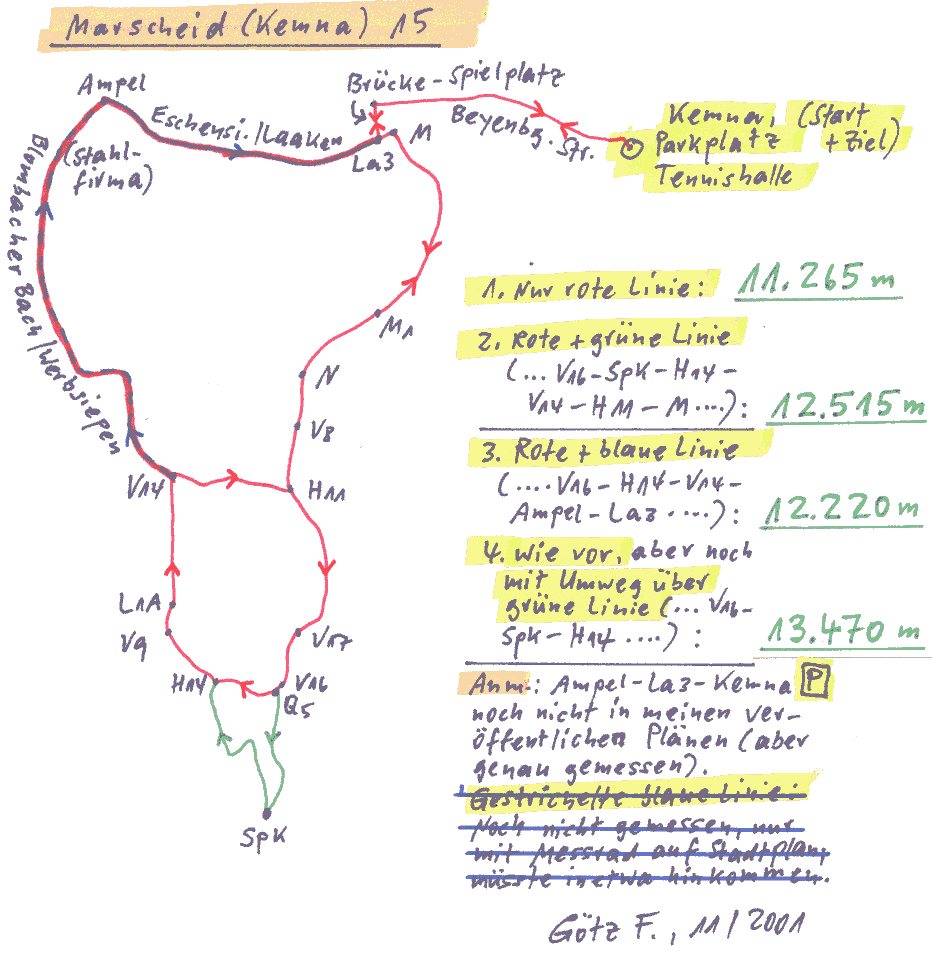 Marscheid (Kemna) 15
Ampel
Brücke-Spielplatz
Eschensi./Laaken
M
La3
Beyenbg. Str.
Kemna, (Start
Parkplatz + Ziel)
Tennishalle
(Stahl-
firma)
Blombacher Bach/Werbsiepen
M1
N
V8
V14
H11
L1A
V9
V17
H14
V16
Q5
SpK
1. Nur rote Linie: 11.265 m
2. Rote + grüne Linie
(... V16-SpK-H14-
V14-H11-M....): 12.515 m
3. Rote + blaue Linie
(....V16-H14-V14-
Ampel-La3.....): 12.220 m
4. wie vor, aber noch
mit Umweg über
grüne Linie (... V16-
SpK-H14 ....) : 13.470 m
Anm.: Ampel-La3-Kemna P
noch nicht in meinen ver-
öffentlichen Plänen (aber
genau gemessen).
Gestrichelte blaue Linie:
Noch nicht gemessen, nur
mit Messrad auf Stadtplan,
müsste in etwa hinkommen.
Götz F., 11/2001